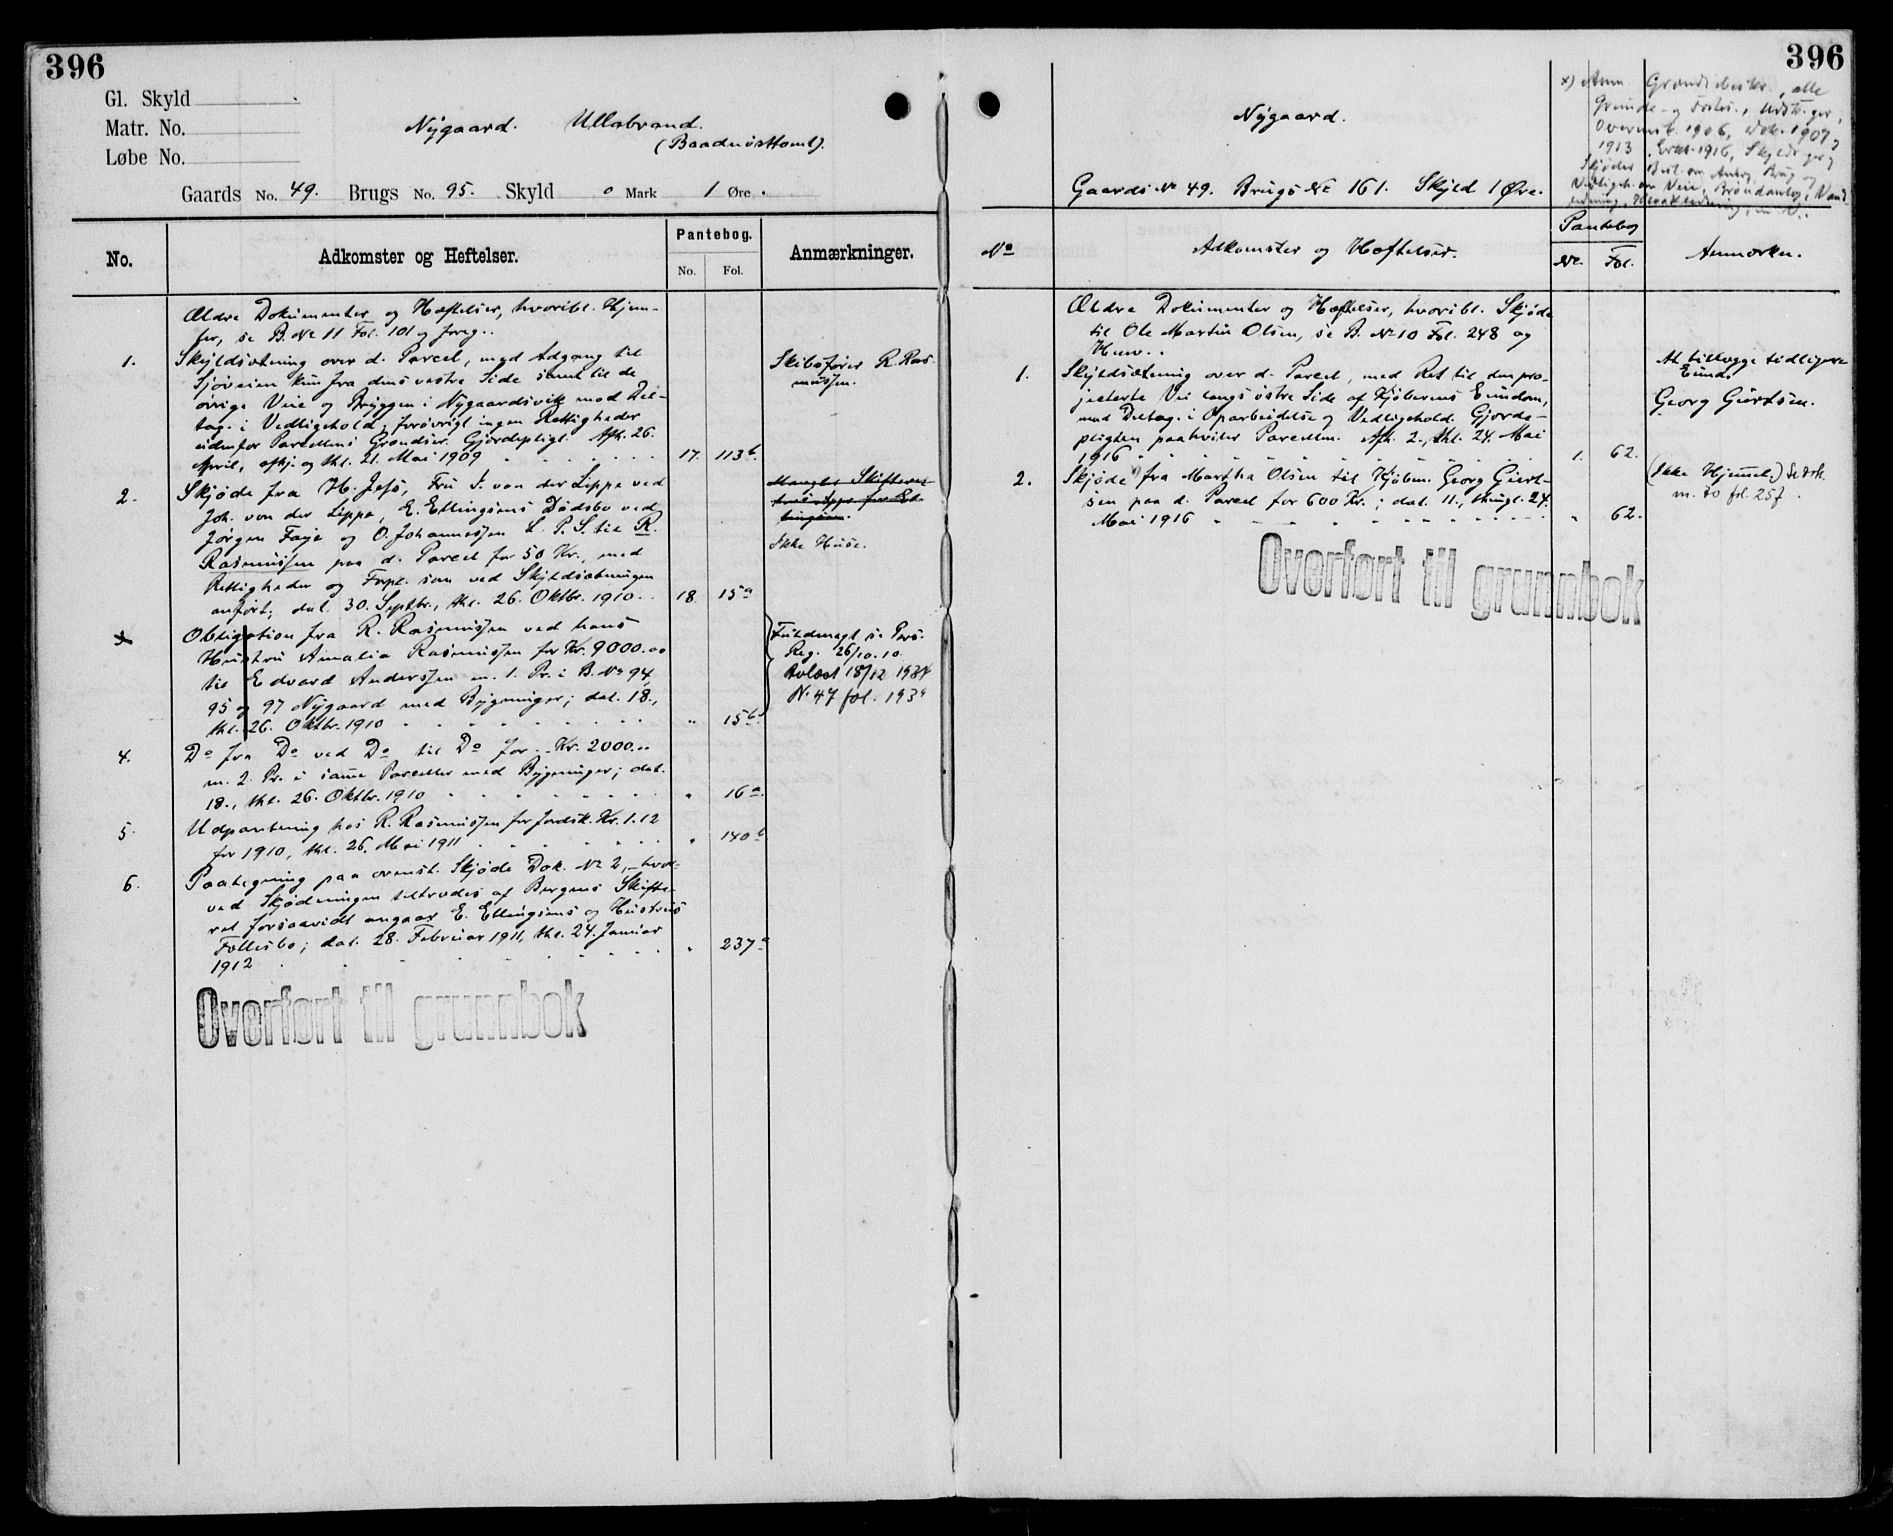 396
Gl. Skyld
Matr. No.
Løbe No.
Nygaard. Ullabrand.
(Baadnøsttomt).
Gaards No. 49. Brugs No. 95. Skyld 0 Mark 1 Øre.
No.
Adkomster og Heftelser.
Pantebog.
No. Fol.
Anmærkninger.
Ældre Dokumenter og Hæftelser, hvoribl. Hjem-
ser, se B. No 11 Fol. 101 og foreg..
1. Skyldsætning over d. Parcel, med Adgang til
Sjøveien kun fra dens vestre Side samt til de
øvrige Veie og Bryggen i Nygaardsvik med Del-
tag. i Vedligehold; forøvrigt ingen Rettigheder
udenfor Parcellens Grændser. Gjerdepligt. Afh. 26.
April, afhj. og thl. 21. Mai 1909 17. 113b.
Skibsfører R. Ras-
mussen.
2. Skjøde fra H. Jess, Fru S. von der Lippe ved
Joh. von der Lippe, E. Ellingsens Dødsbo ved
Jørgen Faye og O. Johannessen L. P. S. til R.
Rasmussen paa d. Parcel for 50 Kr., med
Rettigheder og Forpl. som ved Skyldsætningen
anført; dat. 30. Septbr., thl. 26. Oktbr. 1910 18. 15a
Mangler Skifteret-
Ikke Huse.
3 Obligation fra R. Rasmussen ved hans
Hustru Amalia Rasmussen for Kr. 9000.00
til Edvard Anderssen m. 1. Pr. i B. No 94,
95 og 97 Nygaard med Bygninger; dat. 18.,
thl. 26. Oktbr. 1910 " 15b.
Fuldmagt se Pers.
Reg. 26/10.10.
Avlæst 18/12 1934
N. 47 fol. 193a
4. Do fra Do ved Do til Do for Kr. 2000.00
m. 2. Pr. i samme Parceller med Bygninger; dat.
18., thl. 26. Oktbr. 1910 " 16a.
5. Udpantning hos R. Rasmussen for Jordsk. Kr. 1.12
for 1910, thl. 26. Mai 1911 " 140b
6. Paategning paa ovenst. Skjøde Dok. No 2, hvor-
ved Skjødningen tiltrædes af Bergens Skifte-
ret forsaavidt angaar E. Ellingsens og Hustrus
Fællesbo; dat. 28. Februar 1911, thl. 24. Januar
1912 " 237a
Overført til grunnbok
396
Nygaard.
x) Anm Grændsebeskr., alle
Grunde- og Forts., Udstr. ger,
Overensk. 1906, dok. 1907,
1913
Skjøder Best. om
Vedligeh. om Veie, Brøndanlæg, Vand-
ledning,
Gaards No 49. Brugs No 161. Skyld 1 Øre.
No
Adkomster og Hæftelser.
Pantebog
No. Fol.
Anmærkn.
Ældre Dokumenter og Hæftelser, hvoribl. Skjøde
til Ole Martin Olsen, se B. No 10 Fol. 248 og
Henv..
1. Skyldsætning over d. Parcel, med Ret til den pro-
jecterte Vei langs østre Side af Kjøberens Eiendom,
med Deltag. i Oparbeidelse og Vedligehold. Gjerde-
pligten paahviler Parcellen. Afh. 2., thl. 24. Mai
1916 1. 62.
At tillægge tidligere
Eiend.
Georg Giertsen.
2. Skjøde fra Martha Olsen til Kjøbm. Georg Giert-
sen paa d. Parcel for 600 Kr.; dat. 11., thingl. 24.
Mai 1916 " 62.
(Ikke Hjemmel) Se dok.
m. 70 fol. 257.
Overført til grunnbok